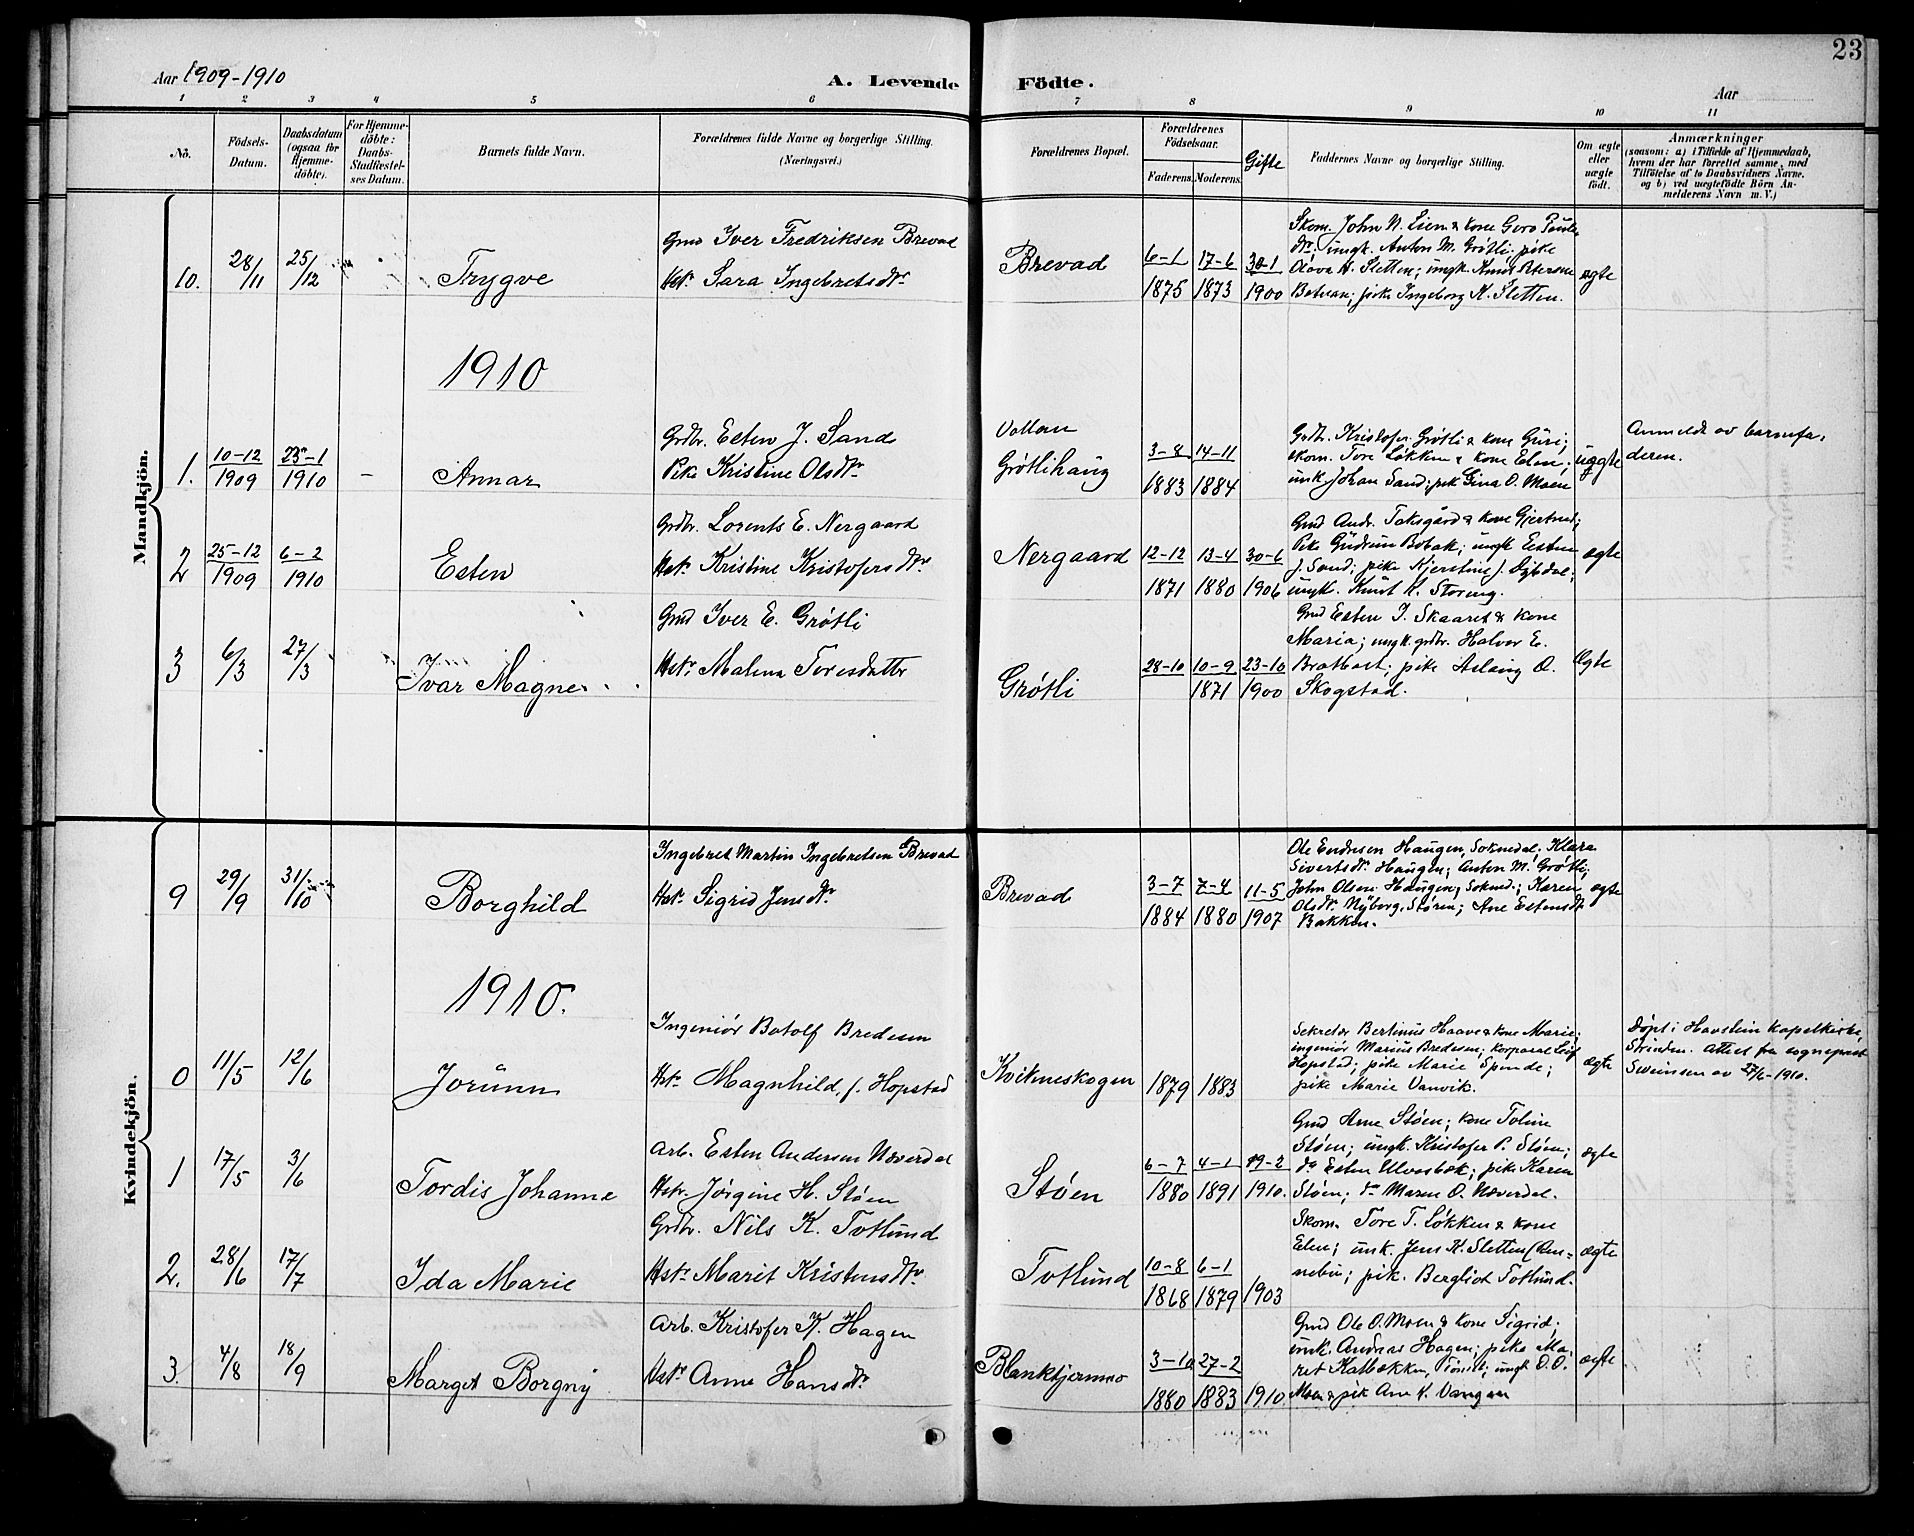 23
Aar 1909-1910
A. Levende Födte.
Aar
1 2 3 4 5 6 7 8 9 10 11
No.
Födsels-
Datum.
Daabsdatum
(ogsaa for
Hjemme-
döbte).
For Hjemme-
döbte:
Daabs-
Stadfæstel-
ses Datum.
Barnets fulde Navn.
Forældrenes fulde Navne og borgerlige Stilling.
(Næringsvei.)
Forældrenes Bopæl.
Forældrenes
Födselsaar.
Faderens. Moderens.
Gifte
Faddernes Navne og borgerlige Stilling.
Om ægte
eller
uægte
født.
Anmærkninger
(saasom: a) i Tilfælde af Hjemmedaab,
hvem der har forrettet samme, med
Tilföielse af to Daabsvidners Navne,
og b) ved uægtefödte Börn An-
melderens Navn m. V.)
Mandkjön.
10. 28/11 25/12 Trygve
Gmd Iver Fredriksen Brevad
Hstr Sara Ingebretsdtr
Brevad
6-1 1875 17-6 1873 30-1 1900
Skom. John N. Lien & kone Goro Pauls
dtr; ungk. Anton M. Grøtli; pike
Olava K. Sletten; ungk. Knut Petersen
pike Ingeborg K. Sletten.
ægte
1910
1. 10-12 1909 23-1 1910 - Annar
Grdbr. Esten J. Sand
Pike Kristine Olsdtr
Grøtlihaug
3-8 1883 14-11 1884
Grdbr. Kristofer Grøtli & kone Guri;
skom. Tore Løkken & kone Elen;
unk. Johan Sand; pik Gina O. Moen
uægte
Anmeldt av barnefa-
deren.
2 25-12 1909 6-2 1910 Esten
Grdbr. Lorents E. Nergaard
Hstr Kristine Kristofersdtr
Nergaard
12-12 1871 13-4 1880 30-6 1906
Gmd Andr. Toksgård & kone Gjertrud;
Pike Gudrun Bobak; ungk Esten
J. Sand; pike Kjerstine J. Dybdal;
ungk. Knut K. Storeng.
ægte
3 6/3 27/3 Ivar Magne
Gmd Iver E. Grøtli
Hstr Malena Toresdatter
Grøtli
28-10 10-9 1871 23-10 1900
Gmd Esten I. Skaaret & kone
Maria; ungk. grdbr. Halvor E.
Brattset; pike Aslaug O.
Skogstad.
Ægte
Kvindekjön.
9 29/9 31/10 Borghild
Ingebret Martin Ingebretsen Brevad
Hstr Sigrid Jensdtr
Brevad
3-7 1884 7-4 1880 11-5 1907
Ole Endresen Haugen, Soknedal. Klara
Sivertsdtr Haugen; Anton M. Grøtli;
John Olsen Haugen, Sokned.; Karen
Olsdtr Nyborg, Støren; Ane Estensdtr
Bakken.
ægte
1910.
0 11/5 12/6 Jorünn
Ingeniør Botolf Bredesen
Hstr Magnhild, f. Hopstad
Kvikneskogen
1879 1883
Sekretær Bertinus Haave & kone Marie;
ingeniør Marius Bredesen; korporal Leif
Hopstad; pike Marie Spende;
pike Marie Vanvik.
ægte
Døpt i Havstein kapelkirke,
Strinden. Attest fra sogneprest
Sveinsen av 27/6-1910.
1 17/5 3/6 Tordis Johanne
Arb. Esten Andersen Næverdal
Hstr. Jørgine H. Støen
Støen
6-7 1880 4-1 1891 19-2 1910.
Gmd Arne Støen; kone Toline
Støen; ungk. Kristofer P. Støen;
do Esten Ulvesbæk; pike Karen
Støen; do Maren O. Næverdal.
ægte
2. 28/6 17/7 Ida Marie
Grdbr. Nils K. Totlund
Hstr Marit Kristensdtr
Totlund
10-8 1868 6-1 1879 1903
Skom. Tore T. Løkken & kone
Elen; unk. Jens K. Sletten
pik. Bergliot Totlund.
ægte
3. 4/8 18/9 Marget Borgny
Arb. Kristofer K. Hagen
Hstr Anne Hansdtr
Blanktjernmo
3-10 1880 27-2 1883 1910.
Gmd Ole O. Moen & kone Sigrid;
unk. Andreas Hagen; pike Ma-
ret Kalbækken, Tönset; ungk O. O.
Moen & pik Ane K. Vangen
ægte